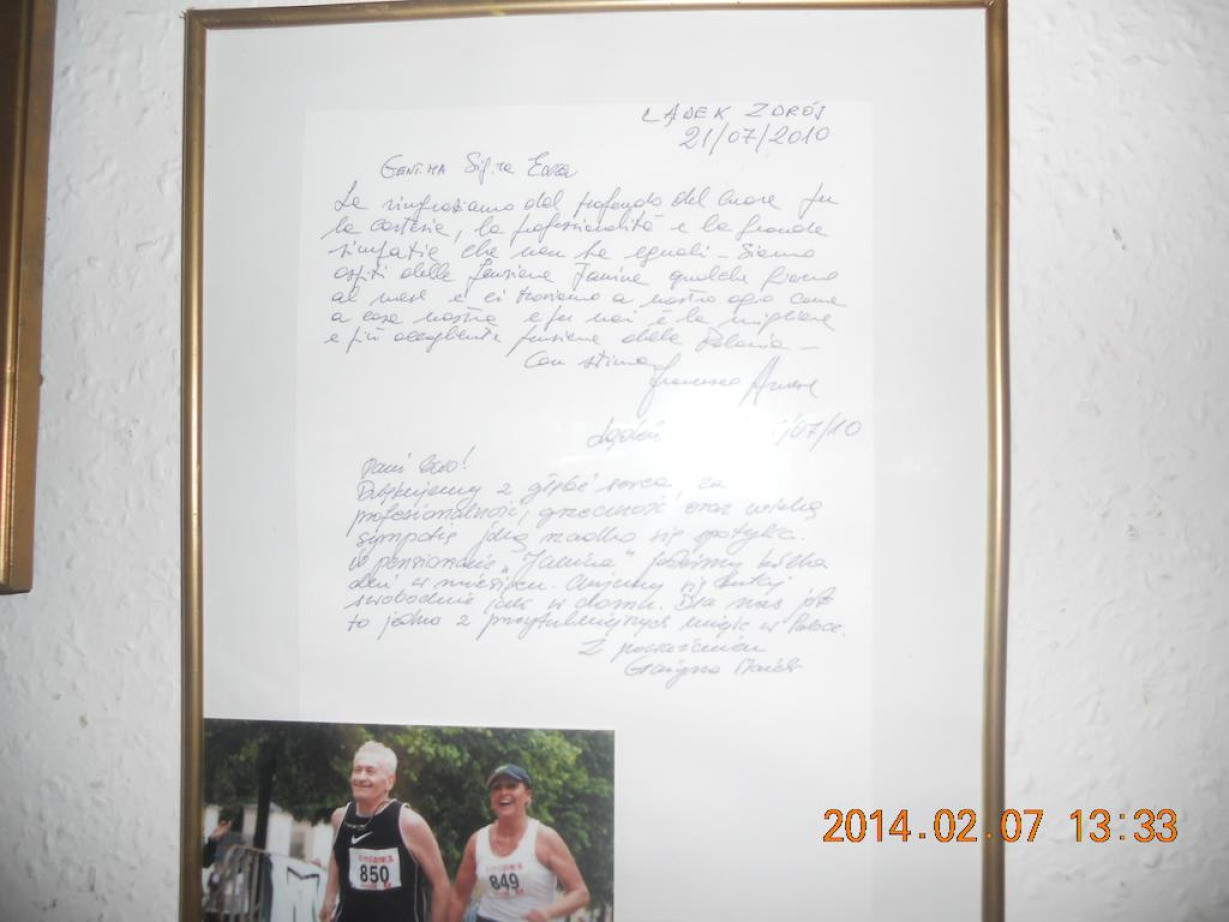 LĄDEK ZDRÓJ
21/07/2010
GENT.MA Sig.ra
Le ringraziamo dal profondo del cuore per
la cortesia, la professionalità e la grande
simpatia che non ha eguali - Siamo
ospiti della Pensione Janina qualche giorno
al mese e ci troviamo a nostro agio come
a casa nostra e per noi è la migliore
e più accogliente pensione della Polonia -
Con stima
Francesco
/07/10
Pani
Dziękujemy z głębi serca za
profesjonalność, grzeczność oraz wielką
sympatię jaką rzadko się spotyka.
W pensjonacie "Janina" jesteśmy kilka
dni w miesiącu. Czujemy się tutaj
swobodnie jak w domu. Dla nas jest
to jedno z przytulniejszych miejsc w Polsce.
Z poważaniem
Grażyna
850
849
2014.02.07 13:33